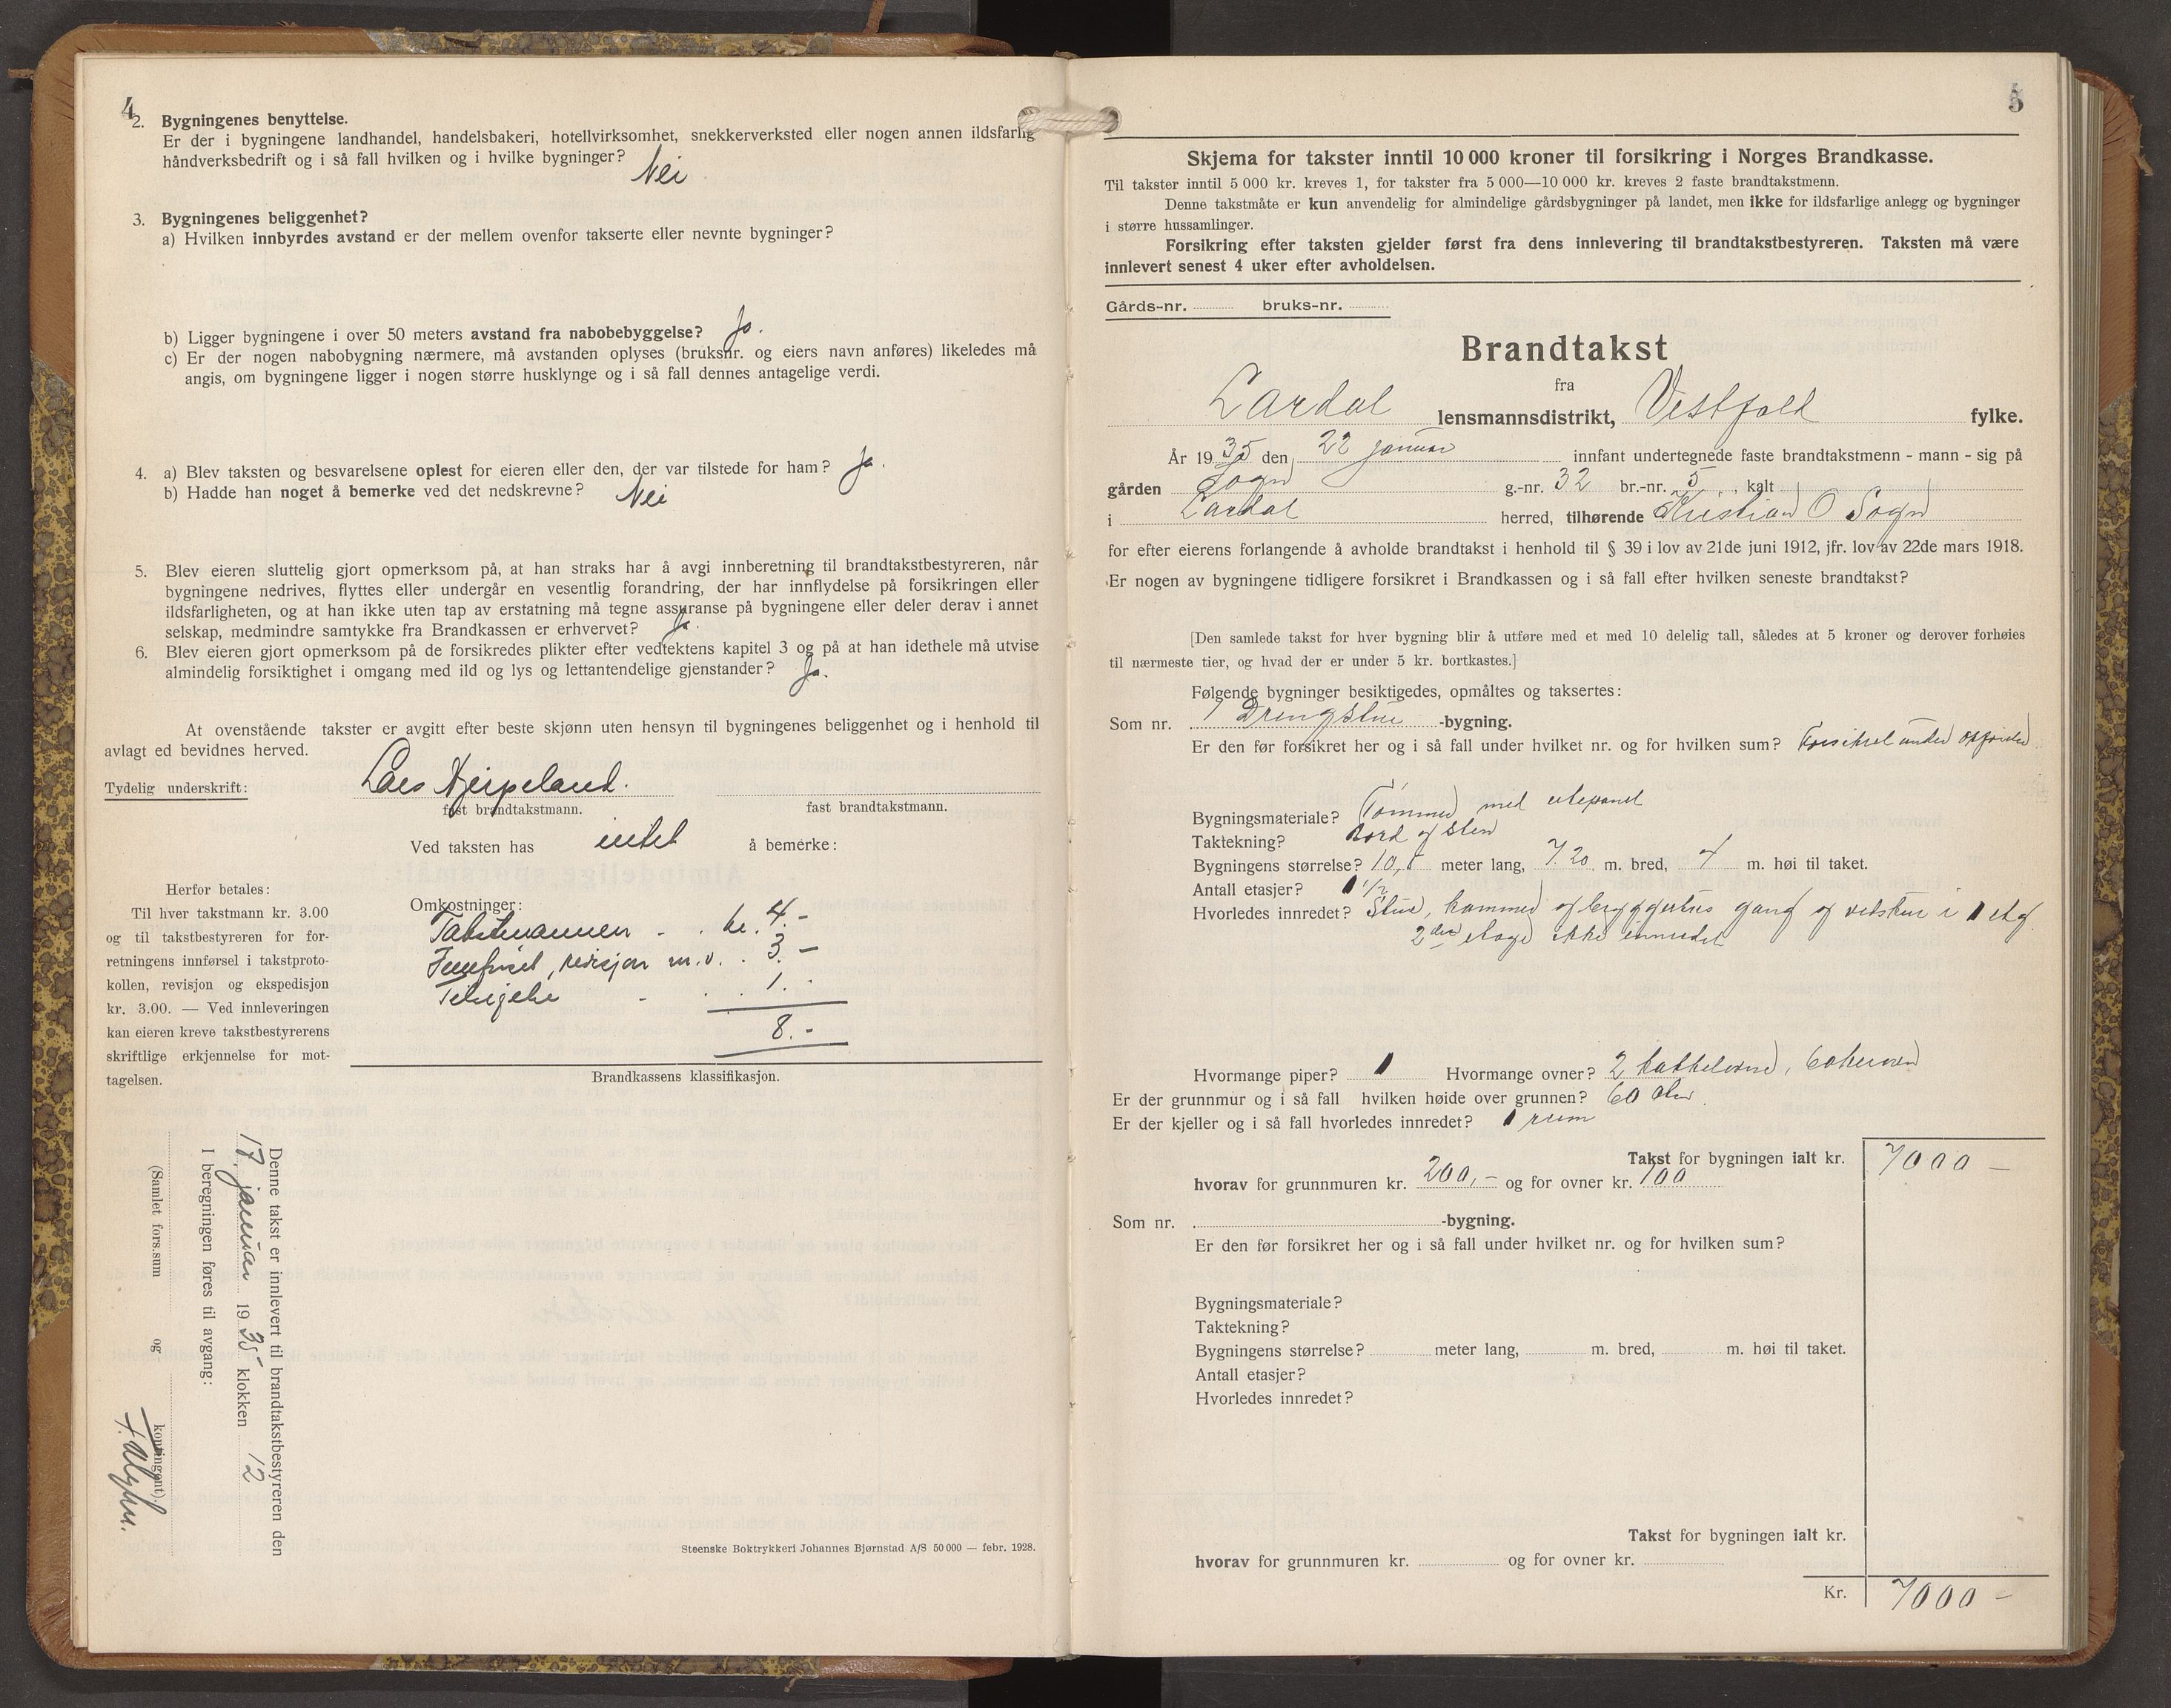 4
2. Bygningenes benyttelse.
Er der i bygningene landhandel, handelsbakeri, hotellvirksomhet, snekkerverksted eller nogen annen ildsfarlig
håndverksbedrift og i så fall hvilken og i hvilke bygninger? Nei
3. Bygningenes beliggenhet?
a) Hvilken innbyrdes avstand er der mellem ovenfor takserte eller nevnte bygninger?
b) Ligger bygningene i over 50 meters avstand fra nabobebyggelse? Ja.
c) Er der nogen nabobygning nærmere, må avstanden oplyses (bruksnr. og eiers navn anføres) likeledes må
angis, om bygningene ligger i nogen større husklynge og i så fall dennes antagelige verdi.
4. a) Blev taksten og besvarelsene oplest for eieren eller den, der var tilstede for ham? Ja.
b) Hadde han noget å bemerke ved det nedskrevne? Nei
5. Blev eieren sluttelig gjort opmerksom på, at han straks har å avgi innberetning til brandtakstbestyreren, når
bygningene nedrives, flyttes eller undergår en vesentlig forandring, der har innflydelse på forsikringen eller
ildsfarligheten, og at han ikke uten tap av erstatning må tegne assuranse på bygningene eller deler derav i annet
selskap, medmindre samtykke fra Brandkassen er erhvervet? Ja.
6. Blev eieren gjort opmerksom på de forsikredes plikter efter vedtektens kapitel 3 og på at han idethele må utvise
almindelig forsiktighet i omgang med ild og lys og lettantendelige gjenstander? Ja.
At ovenstående takster er avgitt efter beste skjønn uten hensyn til bygningenes beliggenhet og i henhold til
avlagt ed bevidnes herved.
Tydelig underskrift: Lars Njerpeland.
fast brandtakstmann. fast brandtakstmann.
Ved taksten has intet å bemerke:
Herfor betales:
Til hver takstmann kr. 3.00
og til takstbestyreren for for-
retningens innførsel i takstproto-
kollen, revisjon og ekspedisjon
kr. 3.00. — Ved innleveringen
kan eieren kreve takstbestyrerens
skriftlige erkjennelse for mot-
tagelsen.
Omkostninger:
Takstmannen - . kr. 4.-
revisjon m.v. . 3.-
1.-
8.-
Brandkassens klassifikasjon.
Denne takst er innlevert til brandtakstbestyreren den
17. januar 1935 klokken 12
I beregningen føres til avgang:
(Samlet fors.sum og kontingent).
Steenske Boktrykkeri Johannes Bjørnstad A/S 50 000 — febr. 1928.
5
Skjema for takster inntil 10 000 kroner til forsikring i Norges Brandkasse.
Til takster inntil 5 000 kr. kreves 1, for takster fra 5 000—10 000 kr. kreves 2 faste brandtakstmenn.
Denne takstmåte er kun anvendelig for almindelige gårdsbygninger på landet, men ikke for ildsfarlige anlegg og bygninger
i større hussamlinger.
Forsikring efter taksten gjelder først fra dens innlevering til brandtakstbestyreren. Taksten må være
innlevert senest 4 uker efter avholdelsen.
Gårds-nr. bruks-nr.
Brandtakst
fra
Lardal lensmannsdistrikt, Vestfold fylke.
År 1935 den 22 januar innfant undertegnede faste brandtakstmenn - mann - sig på
gården Sogn g.-nr. 32 br.-nr. 5, kalt
i Lardal herred, tilhørende Kristian O Sogn
for efter eierens forlangende å avholde brandtakst i henhold til § 39 i lov av 21de juni 1912, jfr. lov av 22de mars 1918.
Er nogen av bygningene tidligere forsikret i Brandkassen og i så fall efter hvilken seneste brandtakst?
[Den samlede takst for hver bygning blir å utføre med et med 10 delelig tall, således at 5 kroner og derover forhøies
til nærmeste tier, og hvad der er under 5 kr. bortkastes.]
Følgende bygninger besiktigedes, opmåltes og taksertes:
Som nr. 1 Drengstue -bygning.
Er den før forsikret her og i så fall under hvilket nr. og for hvilken sum? Forsikret under opførelse
Bygningsmateriale? Tømmer med utepanel
Taktekning? Bord og sten
Bygningens størrelse? 10,5 meter lang, 7.20 m. bred, 4 m. høi til taket.
Antall etasjer? 1 1/2
Hvorledes innredet? Stue, kammer og bryggerhus gang og vedskur i 1 etg.
2den etage ikke innredet
Hvormange piper? 1 Hvormange ovner? 2 kakkelovne, 
Er der grunnmur og i så fall hvilken høide over grunnen? 60 
Er der kjeller og i så fall hvorledes innredet? 1 rum
Takst for bygningen ialt kr. 7000 -
hvorav for grunnmuren kr. 200,- og for ovner kr. 100
Som nr. -bygning.
Er den før forsikret her og i så fall under hvilket nr. og for hvilken sum?
Bygningsmateriale?
Taktekning?
Bygningens størrelse? meter lang, m. bred, m. høi til taket.
Antall etasjer?
Hvorledes innredet?
Takst for bygningen ialt kr.
hvorav for grunnmuren kr. og for ovner kr.
Kr. 7000 -